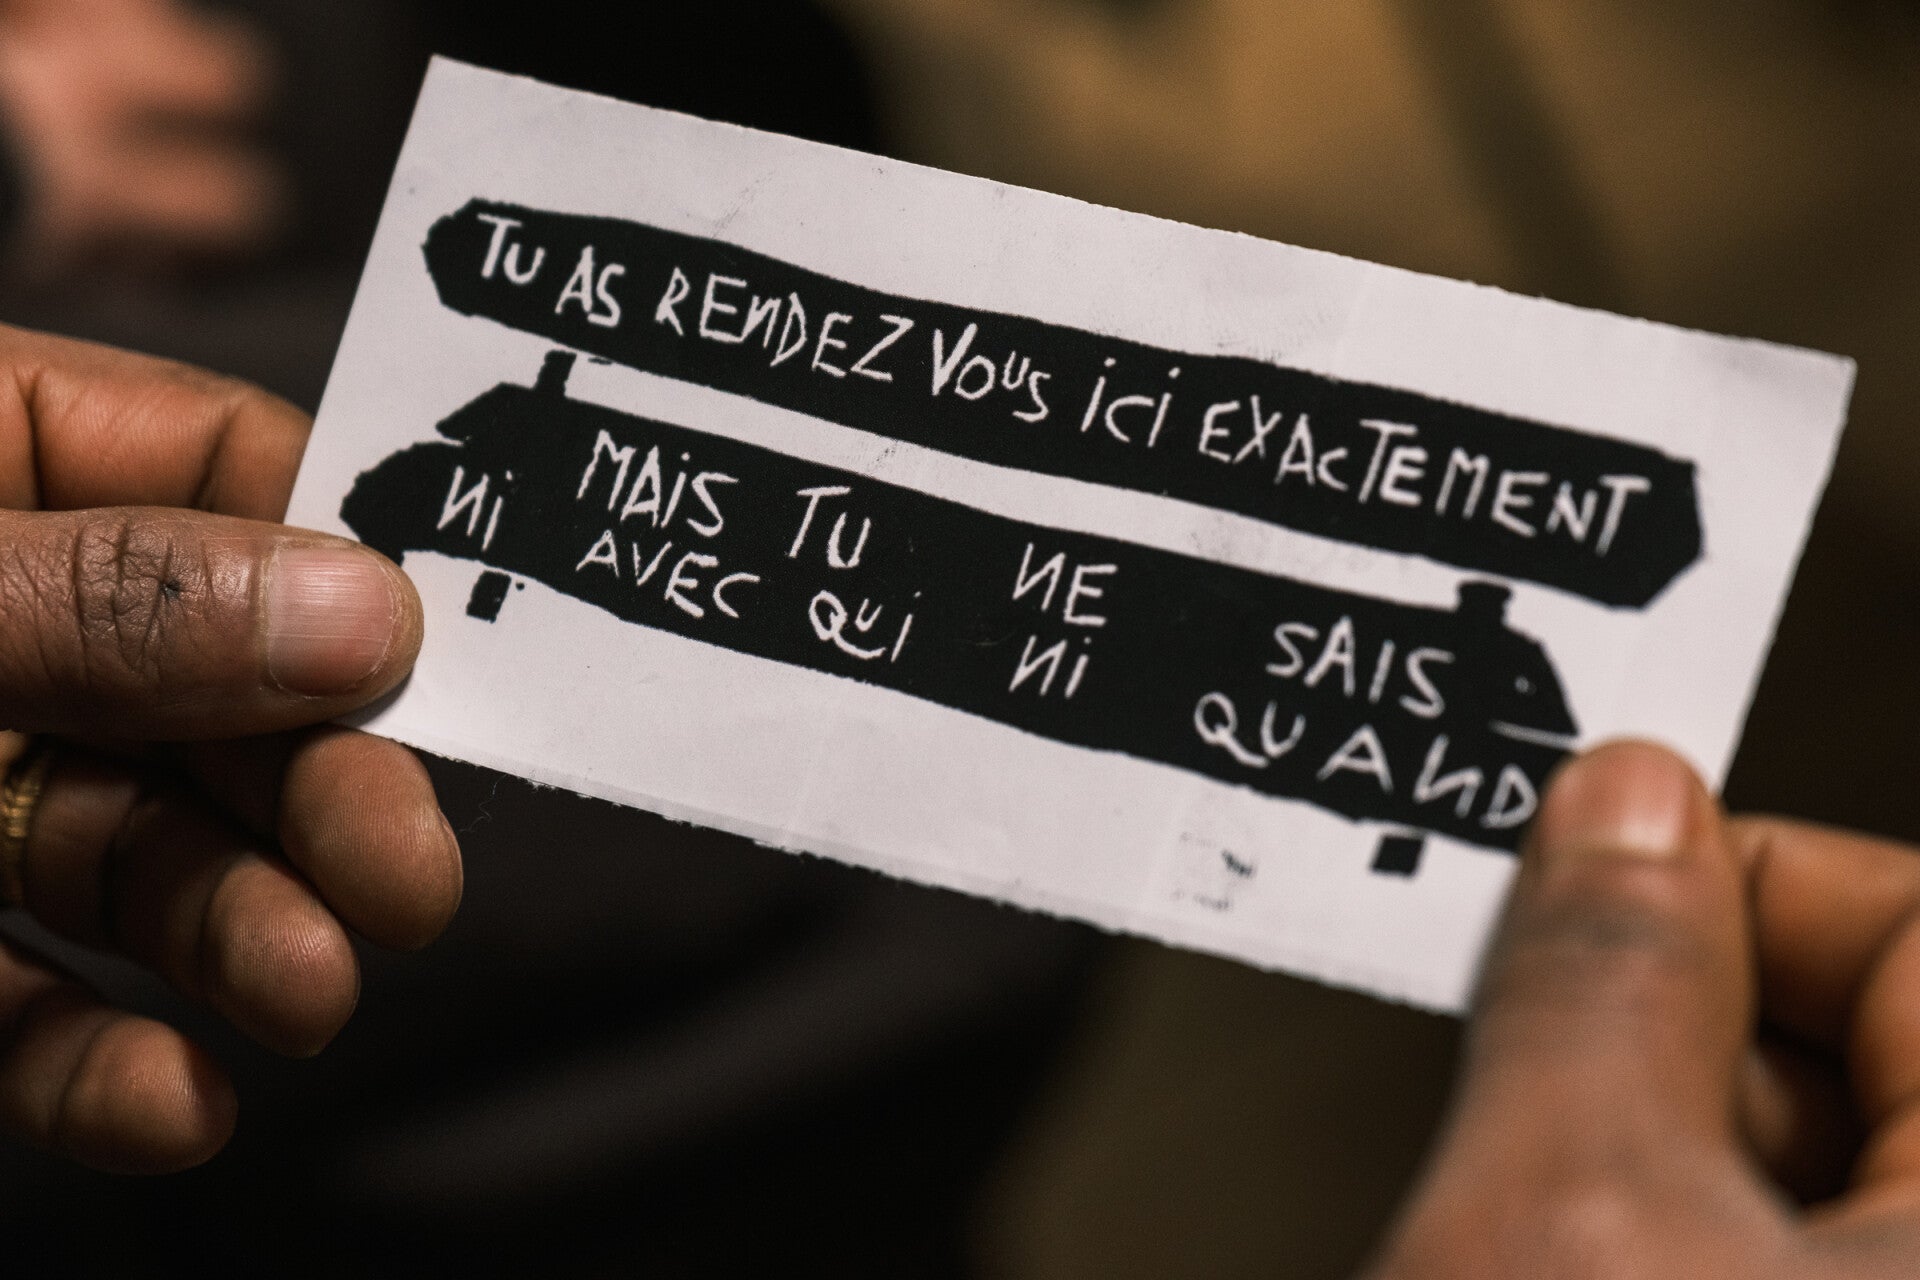 TU AS RENDEZ VOUS iCi EXACTEMENT
MAiS TU NE SAIS
Ni AVEC QUi Ni QUAND